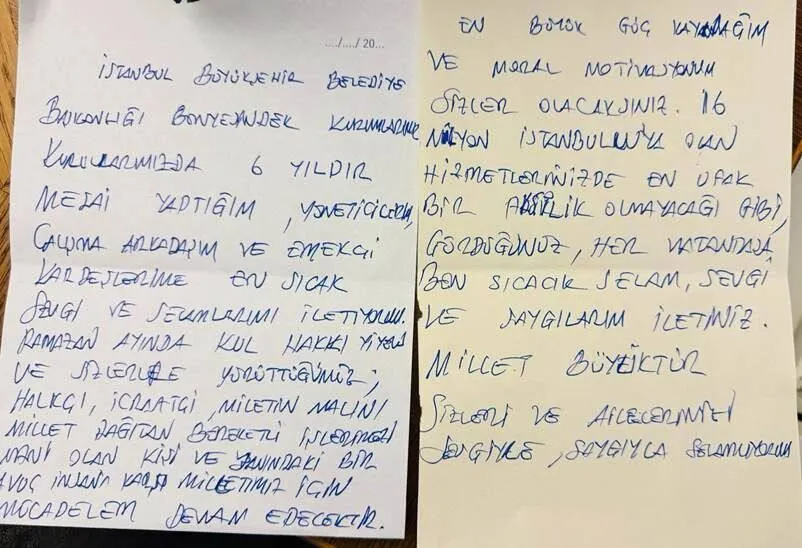 ..../..../ 20...
İSTANBUL BÜYÜKŞEHİR BELEDİYE
BAŞKANLIĞI BÜNYESİNDEKİ KURUMLARIMIZ
KURULLARIMIZDA 6 YILDIR
MESAİ YAPTIĞIM, YÖNETİCİLERİM,
ÇALIŞMA ARKADAŞIM VE EMEKÇİ
KARDEŞLERİME EN SICAK
SEVGİ VE SELAMLARIMI İLETİYORUM.
RAMAZAN AYINDA KUL HAKKI YİYEN
VE SİZLERLE YÜRÜTTÜĞÜMÜZ;
HALKÇI, İCRAATÇI, MİLLETİN MALINI
MİLLETE DAĞITAN BEREKETLİ İŞLERİMİZİ
MANİ OLAN KİŞİ VE YANINDAKİ BİR
AVUÇ İNSANA KARŞI MİLLETİMİZ İÇİN
MÜCADELEM DEVAM EDECEKTİR.
EN BÜYÜK GÜÇ KAYNAĞIM
VE MORAL MOTİVASYONUM
SİZLER OLACAKSINIZ. 16
MİLYON İSTANBULLUYA OLAN
HİZMETLERİNİZDE EN UFAK
BİR OLMAYACAĞI GİBİ,
GÖRDÜĞÜNÜZ, HER VATANDAŞA
BEN SICACIK SELAM, SEVGİ
VE SAYGILARIM İLETİNİZ.
MİLLET BÜYÜKTÜR
SİZLERİ VE AİLELERİNİZİ
SEVGİYLE, SAYGIYLA SELAMLIYORUM